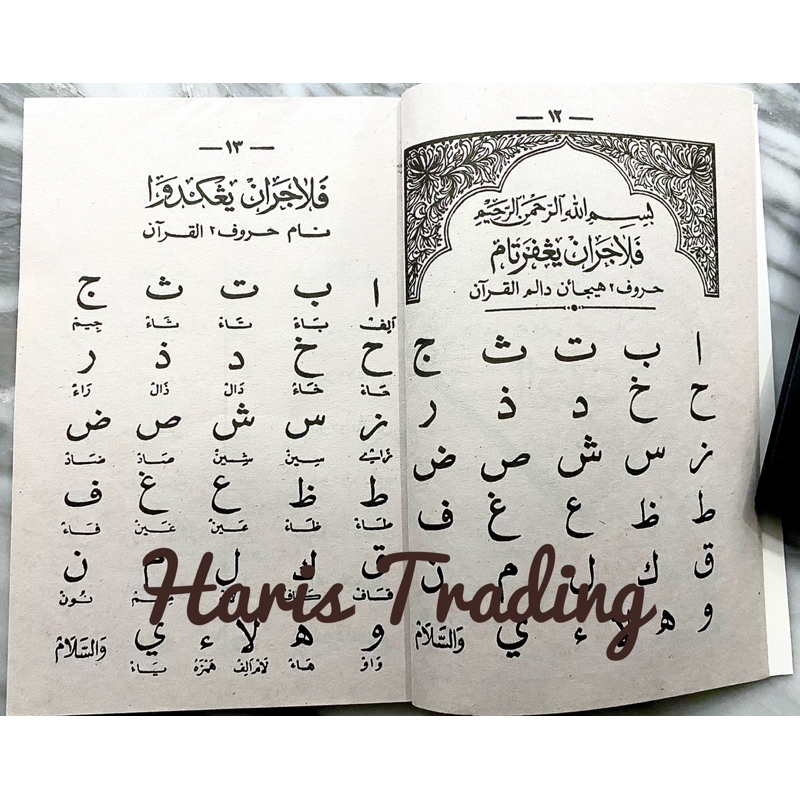 — ١٢ —
بسم الله الرحمن الرحيم
ڤلاجرن يڠ ڤرتام
حروف٢ هيجائن دالم القرآن
ا ب ت ث ج
ح خ د ذ ر
ز س ش ص ض
ط ظ ع غ ف
ق ك ل م ن
و ه لا ء ي والسلام
— ١٣ —
ڤلاجرن يڠ كدوا
نام حروف٢ القرآن
ا ب ت ث ج
الف باء تاء ثاء جيم
ح خ د ذ ر
حاء خاء دال ذال راء
ز س ش ص ض
زاي سين شين صاد ضاد
ط ظ ع غ ف
طاء ظاء عين غين فاء
ق ك ل م ن
قاف كاف نون
و ه لا ء ي والسلام
واو هاء لام الف همزه ياء
Haris Trading